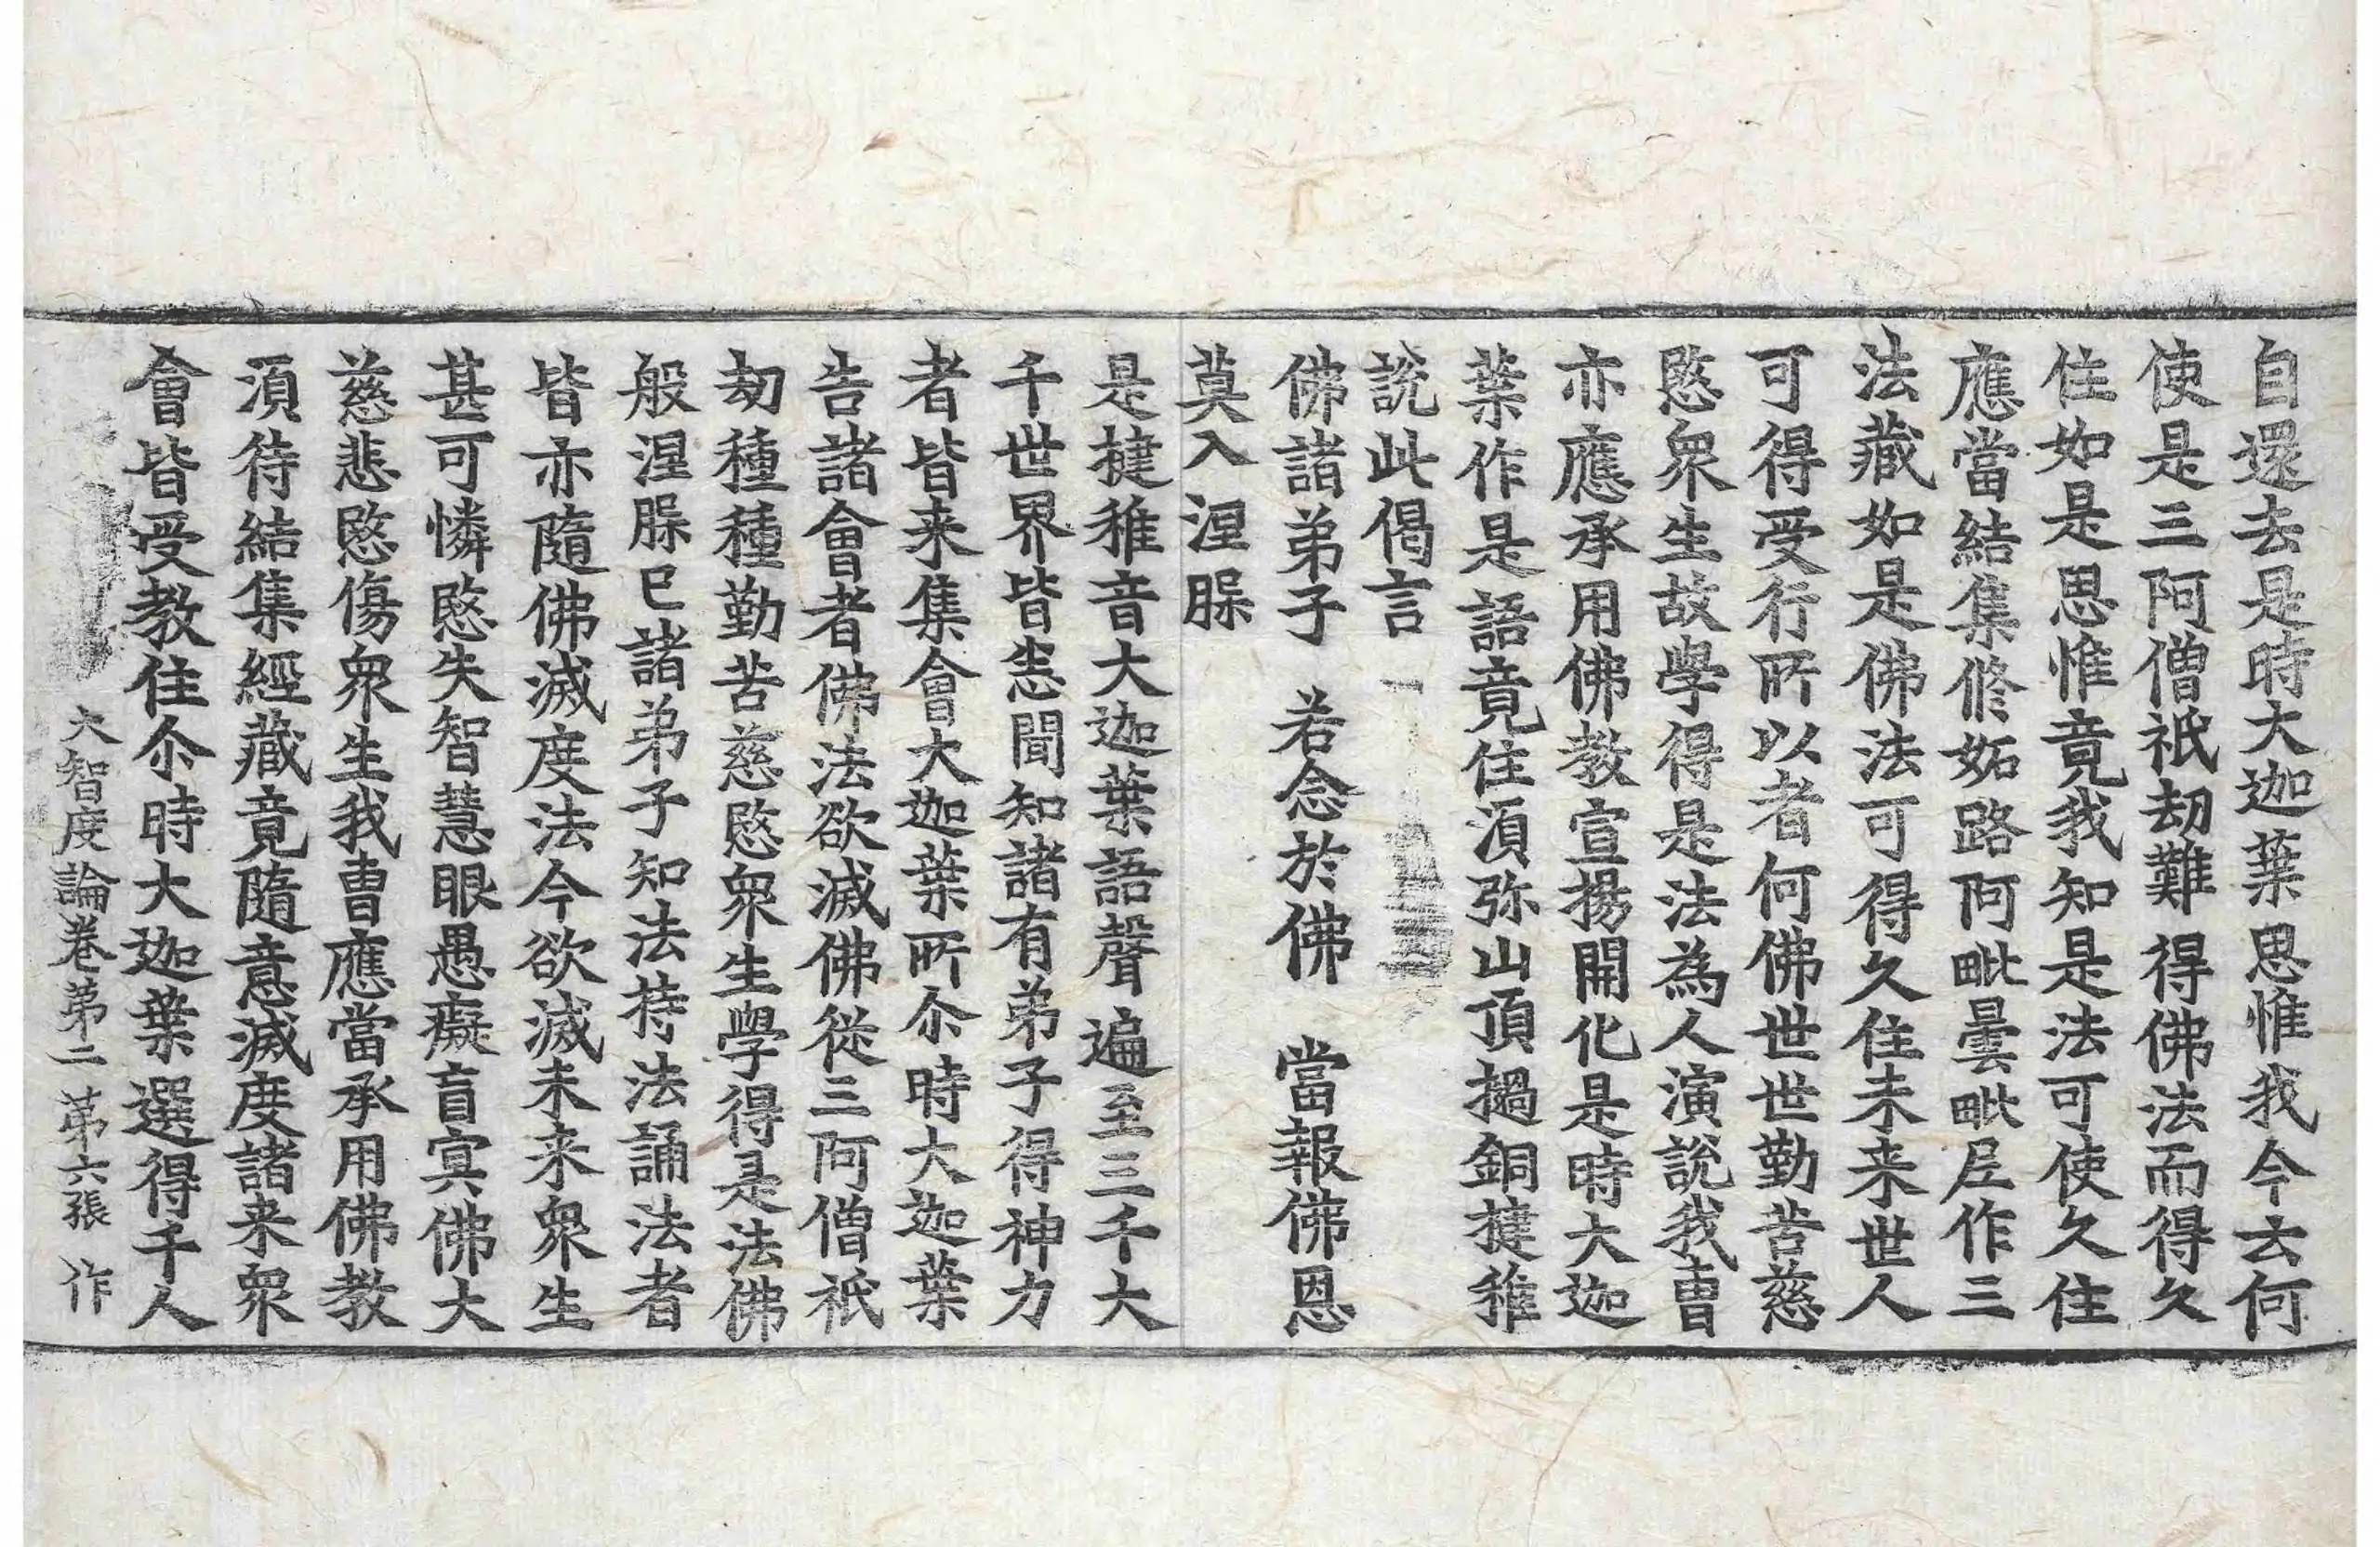 自還去是時大迦葉思惟我今云何
使是三阿僧祇劫難得佛法而得久
住如是思惟竟我知是法可使久住
應當結集修妬路阿毗曇毗尼作三
法藏如是佛法可得久住未来世人
可得受行所以者何佛世世勤苦慈
愍衆生故學得是法為人演說我曺
亦應承用佛教宣揚開化是時大迦
葉作是語竟住湏弥山頂撾銅揵稚
說此偈言
佛諸弟子　若念於佛　當報佛恩
莫入涅槃
是揵稚音大迦葉語聲遍至三千大
千世界皆悉聞知諸有弟子得神力
者皆来集會大迦葉所尒時大迦葉
告諸會者佛法欲滅佛從三阿僧祇
劫種種勤苦慈愍衆生學得是法佛
般涅槃已諸弟子知法持法誦法者
皆亦隨佛滅度法今欲滅未来衆生
甚可憐愍失智慧眼愚癡盲冥佛大
慈悲愍傷衆生我曺應當承用佛教
湏待結集經藏竟隨意滅度諸来衆
會皆受教住尒時大迦葉選得千人
大智度論卷第二　第六張　作